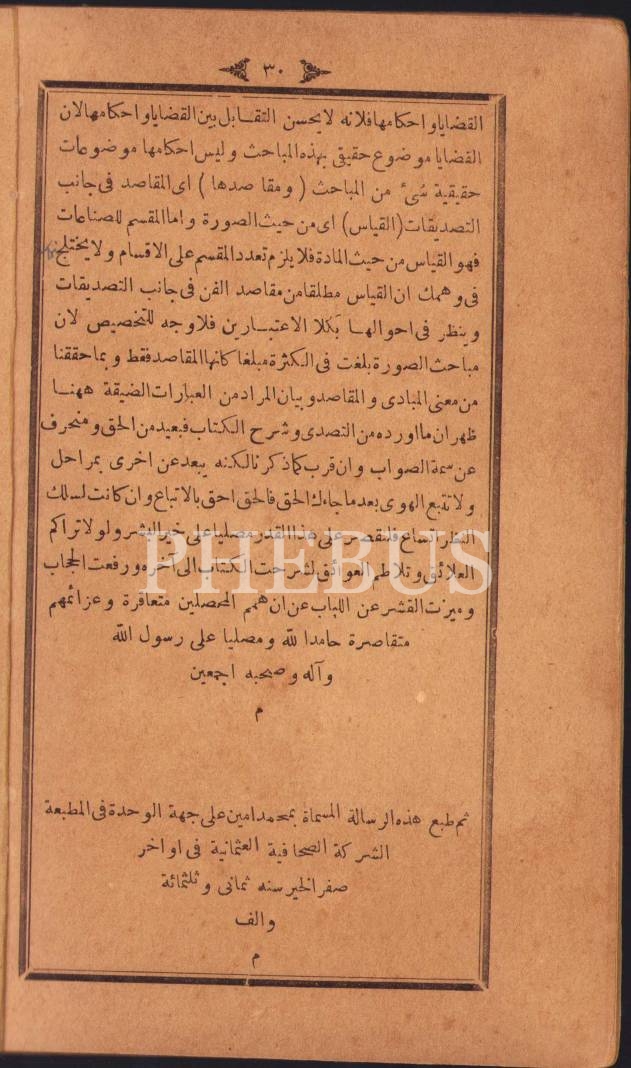 ٣٠
القضايا واحكامها فلانه لا يحسن التقابل بين القضايا واحكامها لان
القضايا موضوع حقيقى بهذه المباحث وليس احكامها موضوعات
حقيقية شئ من المباحث ( ومقاصدها ) اى المقاصد فى جانب
التصديقات (القياس) اى من حيث الصورة واما المقسم للصناعات
فهو القياس من حيث المادة فلا يلزم تعدد المقسم على الاقسام ولا يختلج
فى وهمك ان القياس مطلقا من مقاصد الفن فى جانب التصديقات
وينظر فى احوالها بكلا الاعتبارين فلاوجه للتخصيص لان
مباحث الصورة بلغت فى الكثرة مبلغا كانها المقاصد فقط وبما حققنا
من معنى المبادى والمقاصد وبيان المراد من العبارات الضيقة ههنا
ظهر ان ما اورده من التصدى وشرح الكتاب فبعيد من الحق ومنحرف
عن سمة الصواب وان قرب كما ذكرنا لكنه يبعد عن اخرى بمراحل
ولا تتبع الهوى بعد ما جاءك الحق فالحق احق بالاتباع وان كانت لسلك
النظر اتساع فلنقصر على هذا القدر مصليا على خير البشر ولولا تراكم
العلائق وتلاطم العوائق لشرحت الكتاب الى آخره ورفعت الحجاب
وميزت القشر عن اللباب عن ان همم المحصلين متعاقرة وعزائمهم
متقاصرة حامدا لله ومصليا على رسول الله
وآله وصحبه اجمعين
م
تم طبع هذه الرسالة المسماة بمحمد امين على جهة الوحدة فى المطبعة
الشركة الصحافية العثمانية فى اواخر
صفر الخير سنه ثمانى وثلثمائة
والف
م
PHEBUS